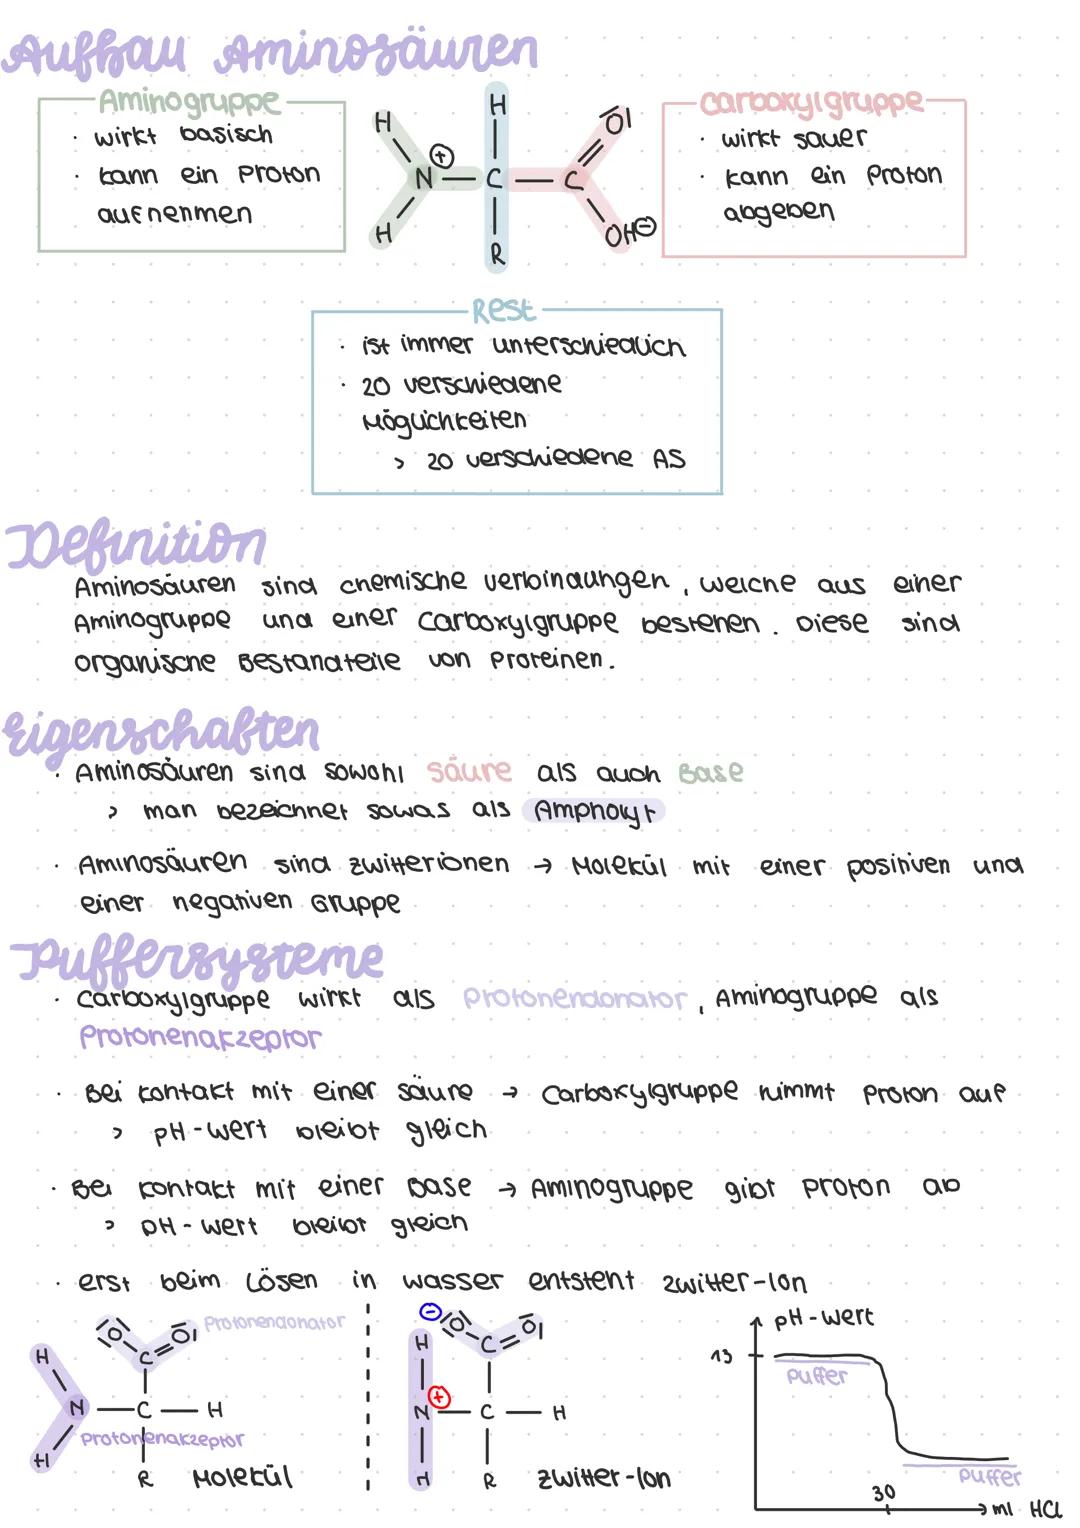 Aufbau Aminosäuren
Aminogruppe
· wirkt basisch
· kann ein Proton
aufnehmen
H
H
N
⊕
H
C
R
C
O
OH⊖
Carboxylgruppe
· wirkt sauer
· kann ein Proton
abgeben
Rest
· ist immer unterschiedlich
· 20 verschiedene
Möglichkeiten
> 20 verschiedene AS
Definition
Aminosäuren sind chemische Verbindungen, welche aus einer
Aminogruppe und einer Carboxylgruppe bestehen. Diese sind
organische Bestandteile von Proteinen.
Eigenschaften
· Aminosäuren sind sowohl Säure als auch Base
> man bezeichnet sowas als Ampholyt
· Aminosäuren sind Zwitterionen → Molekül mit einer positiven und
einer negativen Gruppe
Puffersysteme
· Carboxylgruppe wirkt als Protonendonator, Aminogruppe als
Protonenakzeptor
· Bei Kontakt mit einer Säure → Carboxylgruppe nimmt Proton auf
> pH-Wert bleibt gleich
· Bei Kontakt mit einer Base → Aminogruppe gibt Proton ab
> pH-Wert bleibt gleich
· erst beim Lösen in Wasser entsteht Zwitter-Ion
O
O
Protonendonator
C
H
N
C
H
H
Protonenakzeptor
R
Molekül
⊖
O
O
C
H
⊕
N
C
H
H
R
Zwitter-Ion
pH-Wert
13
Puffer
Puffer
30
ml HCl